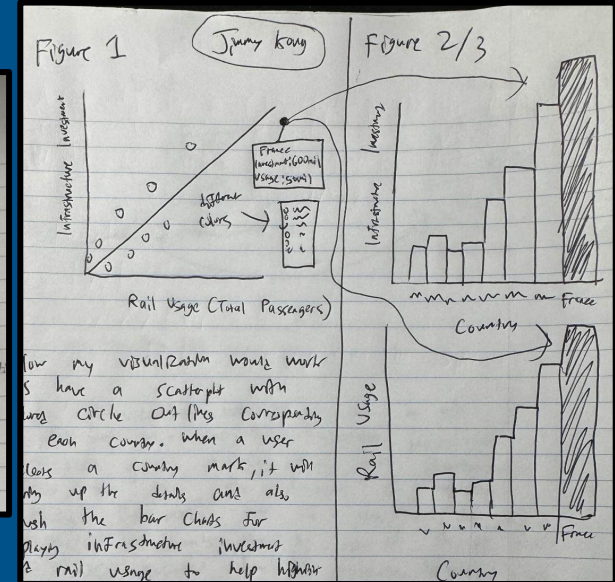 Figure 1
Jimmy Kong
Figure 2/3
Infrastructure Investment
France
Investment: 600mil
Usage: 50mil
different
colors
Rail Usage (Total Passengers)
Infrastructure
Country
France
Rail Usage
Country
France
my visualization would work
have a scatterplot with
circle outlines
each country. When a user
a country mark, it will
up the details and also
the bar charts for
infrastructure investment
rail usage to help